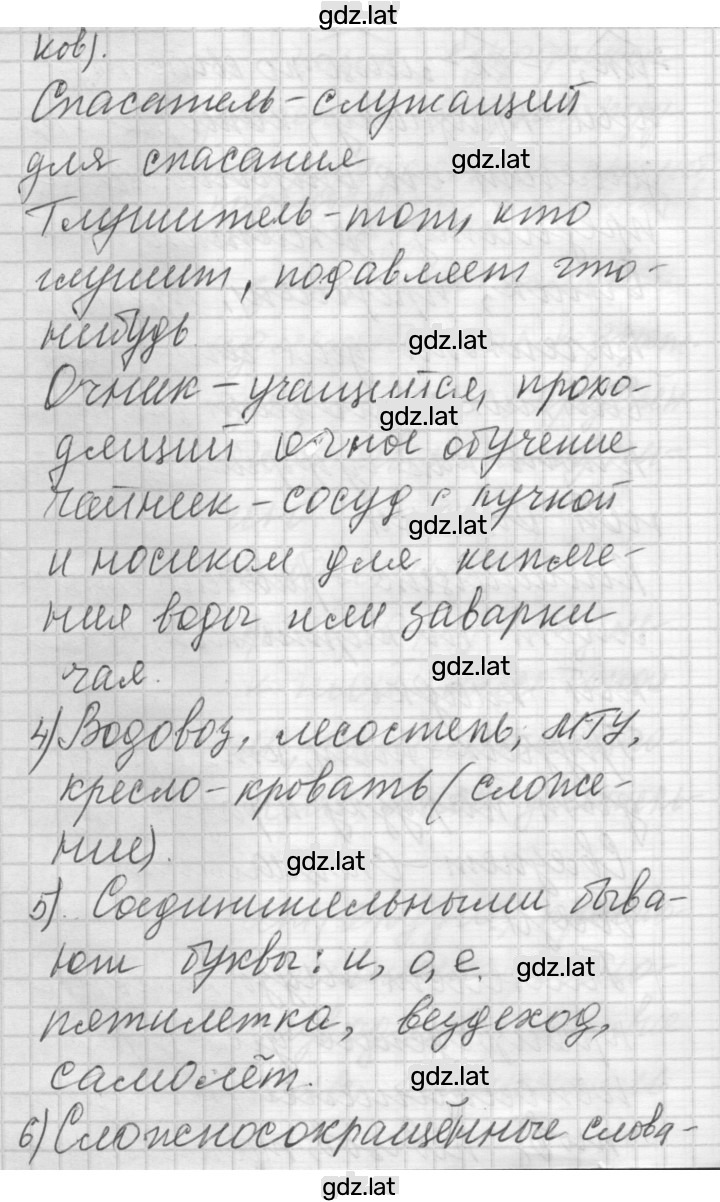 gdz.lat
ков).
Спасатель - служащий
для спасания
gdz.lat
Глушитель - тот, кто
глушит, подавляет что-
нибудь
gdz.lat
Очник - учащийся, прохо-
gdz.lat
дящий очное обучение
Чайник - сосуд с ручкой
gdz.lat
и носиком для кипяче-
ния воды или заварки
чая.
gdz.lat
4) Водовоз, лесостепь, МТУ,
кресло-кровать (сложе-
ние).
gdz.lat
5). Соединительными быва-
ют буквы: и, о, е.
gdz.lat
пятилетка, вездеход,
самолёт.
gdz.lat
6) Сложносокращённые слова-
gdz.lat